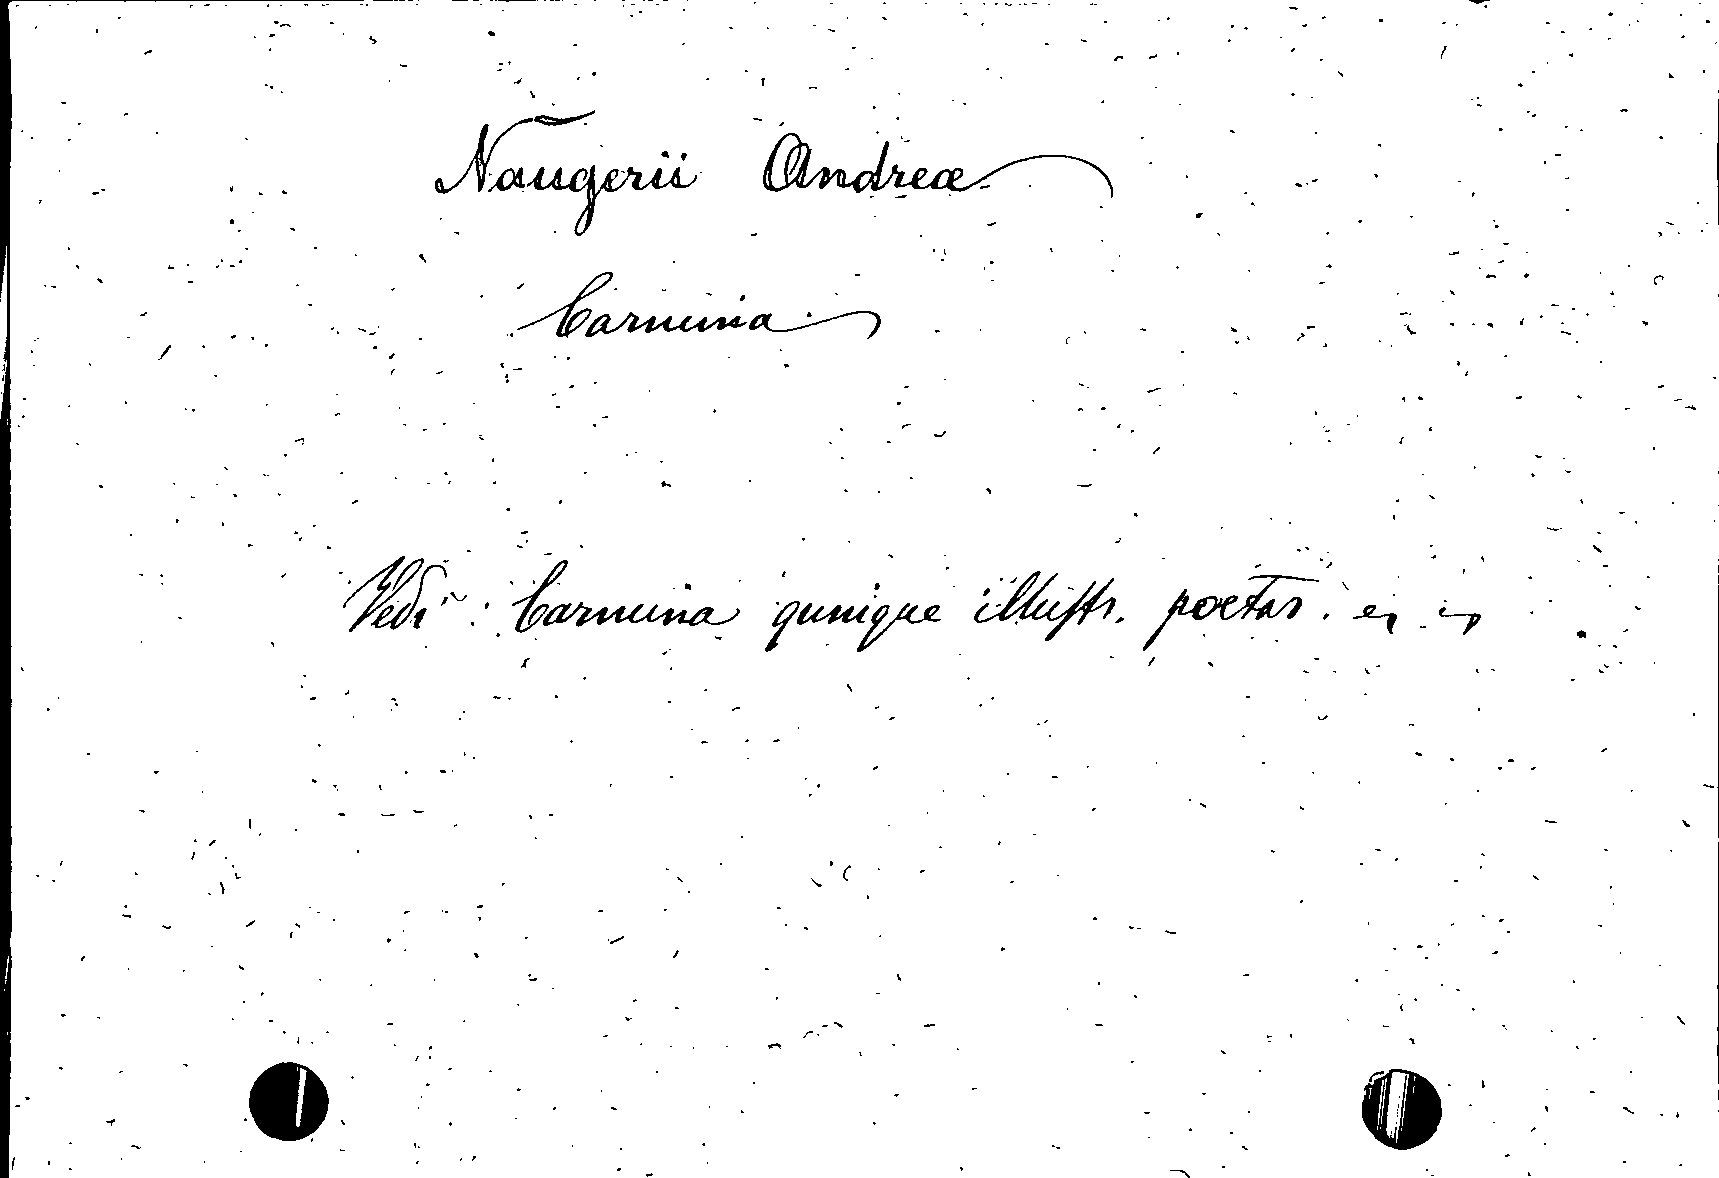 Naugerii Andreæ
Carmina
Vedi: Carmina quinque illustr. poetar.